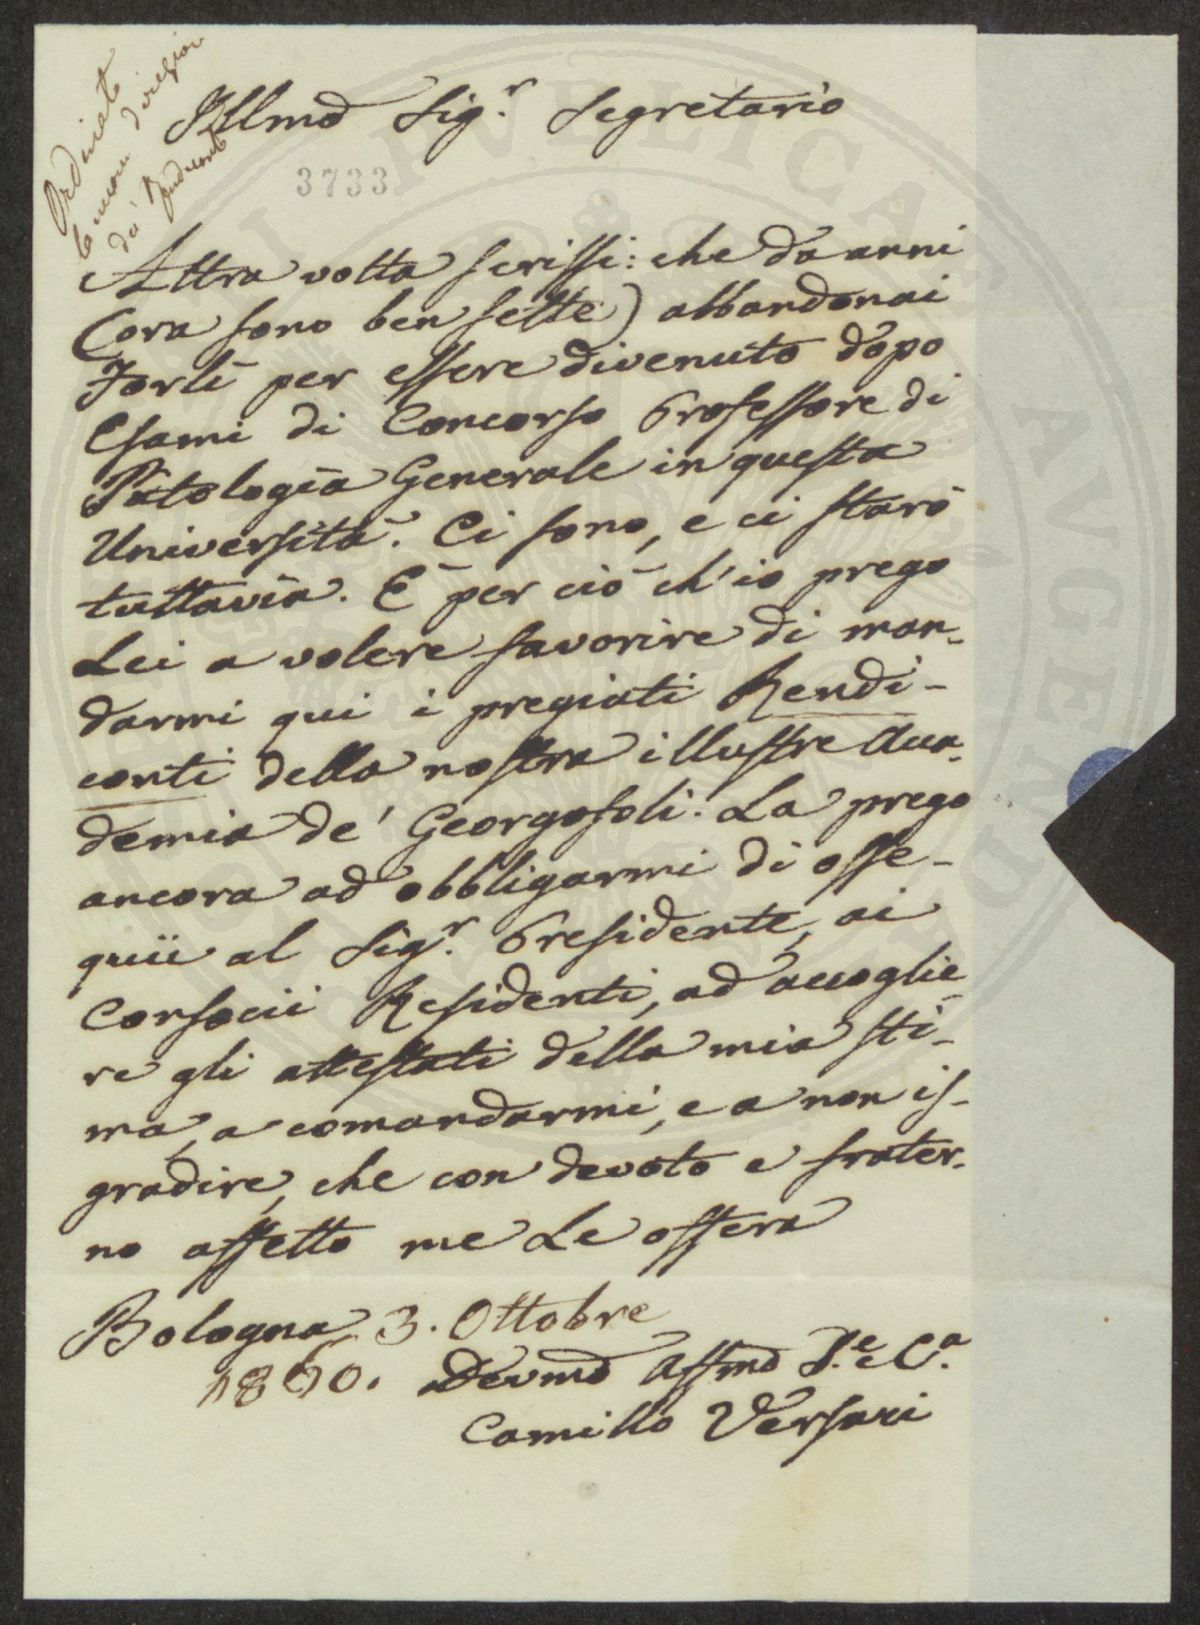 Ordinato
la nuova direzion
dei Rendiconti
Illmo Sigr. Segretario
3733
Altra volta scrissi: che da anni
(ora sono ben sette) abbandonai
Forlì per essere divenuto dopo
Esami di Concorso Professore di
Patologia Generale in questa
Università. Ci sono, e ci starò
tuttavia. È per ciò ch'io prego
Lei a volere favorire di man-
darmi qui i pregiati Rendi-
conti della nostra illustre Acca-
demia de' Georgofoli. La prego
ancora ad obbligarmi di osse-
quii al Sigr. Presidente, ai
Consocii Residenti, ad accoglie-
re gli attestati della mia sti-
ma, a comandarmi, e a non is-
gradire, che con devoto e frater-
no affetto me Le offera
Bologna 3. Ottobre
1860. Devmo Affmo S.e C.a
Camillo Versari